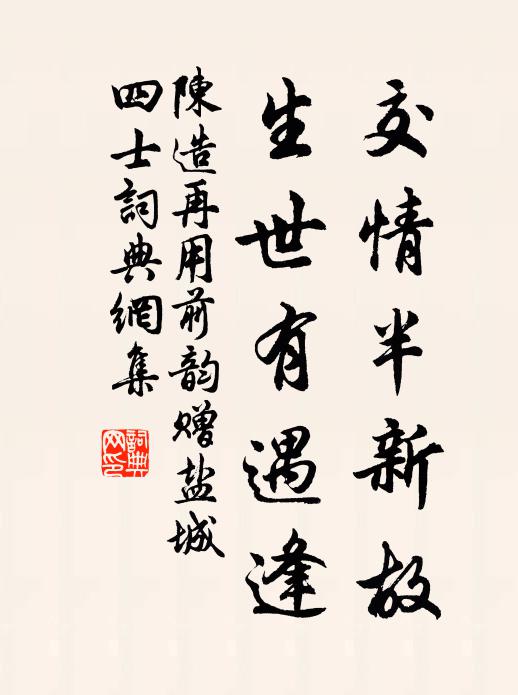 交情半新故
生世有遇逢
陳造再用前韵赠盐城
四士詞典網集
詞典網印